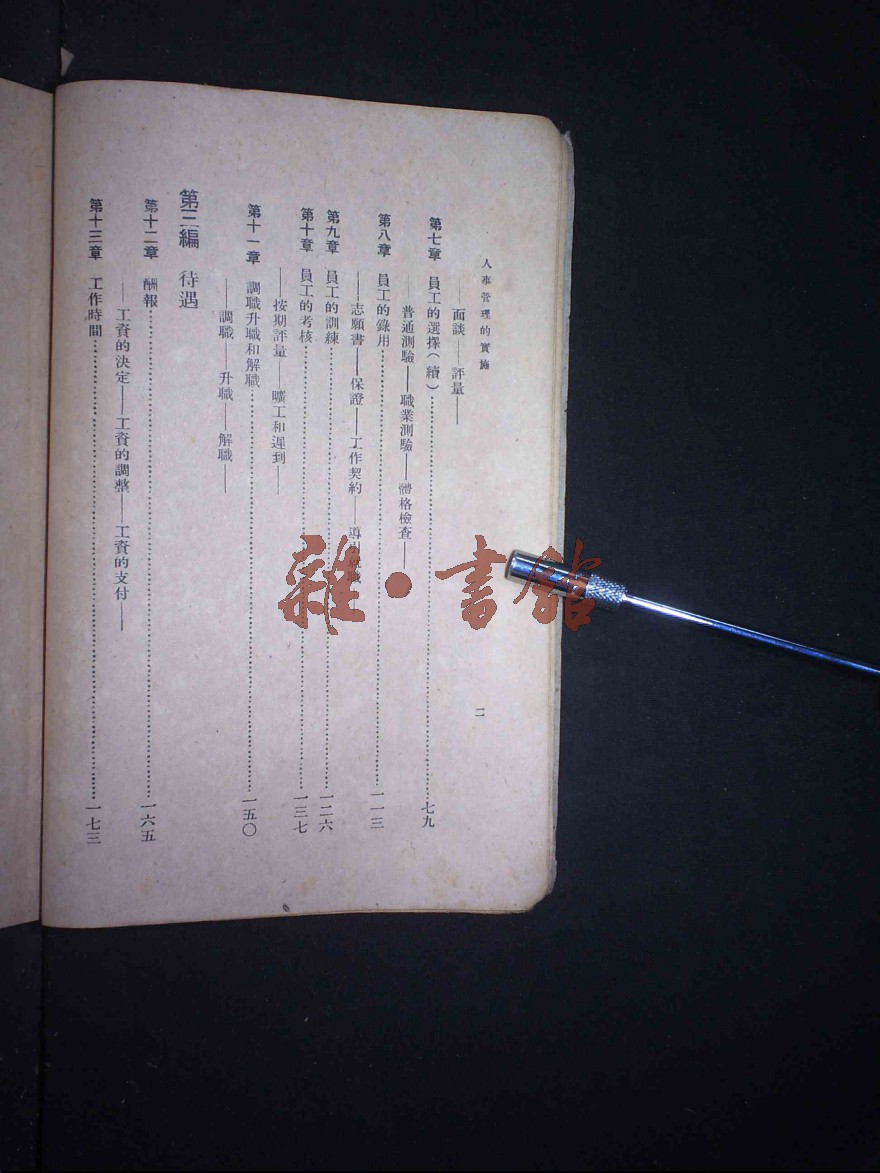 人事管理的實施
二
——面談——評量——
第七章 員工的選擇（續）……七九
——普通測驗——職業測驗——體格檢查——
第八章 員工的錄用……一一三
——志願書——保證——工作契約——導引
第九章 員工的訓練……一二六
第十章 員工的考核……一三七
——按期評量——曠工和遲到——
第十一章 調職升職和解職……一五〇
——調職——升職——解職——
第三編 待遇
第十二章 酬報……一六五
——工資的決定——工資的調整——工資的支付——
第十三章 工作時間……一七三
雜·書館